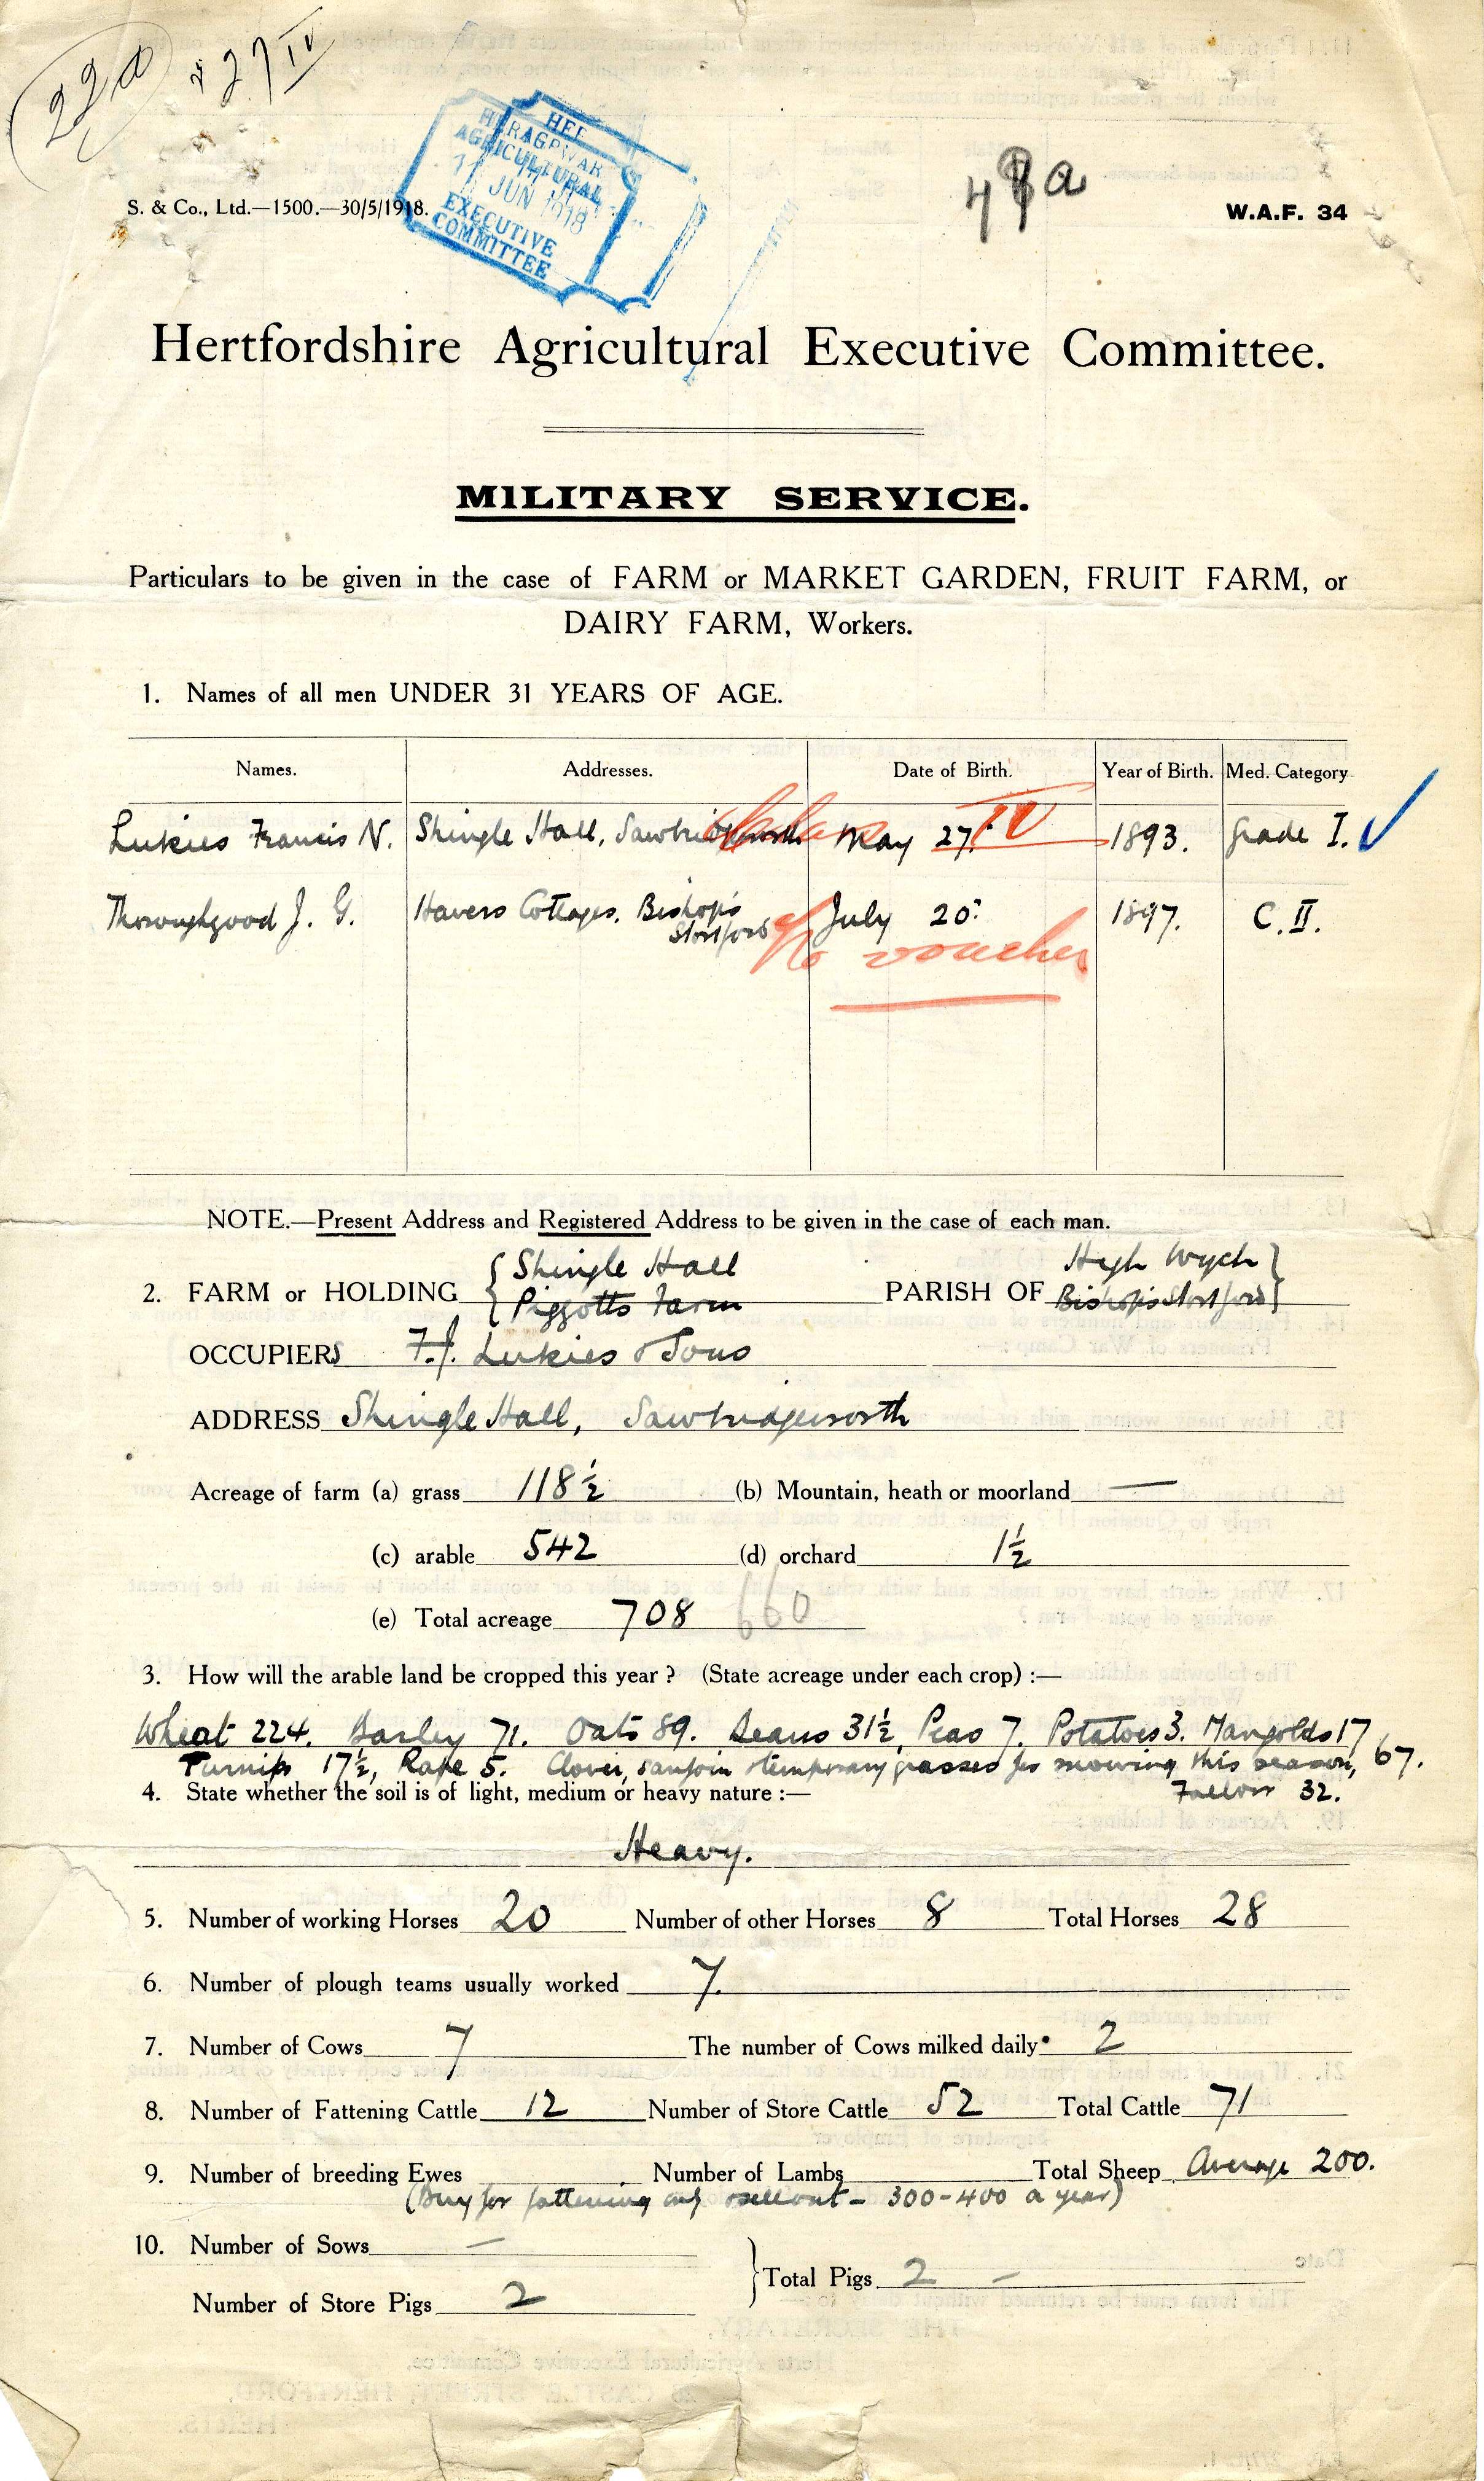 220 & 27 IV
HERAGPWAR
AGRICULTURAL
11 JUN 1918
EXECUTIVE
COMMITTEE
48a
S. & Co., Ltd.—1500.—30/5/1918.
W.A.F. 34
Hertfordshire Agricultural Executive Committee.
MILITARY SERVICE.
Particulars to be given in the case of FARM or MARKET GARDEN, FRUIT FARM, or
DAIRY FARM, Workers.
1. Names of all men UNDER 31 YEARS OF AGE.
Names. Addresses. Date of Birth. Year of Birth. Med. Category
Lukies Francis N. Shingle Hall, Sawbridgeworth May 27. IV 1893. Grade I.
Thoroughgood J. G. Havers Cottages, Bishop's Stortford July 20. 1897. C. II.
No voucher
NOTE.—Present Address and Registered Address to be given in the case of each man.
2. FARM or HOLDING { Shingle Hall PARISH OF High Wych }
{ Piggotts Farm Bishop's Stortford }
OCCUPIERS F.J. Lukies & Sons
ADDRESS Shingle Hall, Sawbridgeworth
Acreage of farm (a) grass 118½ (b) Mountain, heath or moorland —
(c) arable 542 (d) orchard 1½
(e) Total acreage 708 660
3. How will the arable land be cropped this year ? (State acreage under each crop) :—
Wheat 224. Barley 71. Oats 89. Beans 31½, Peas 7. Potatoes 3. Mangolds 17
Turnips 17½, Rape 5. Clover, sanfoin & temporary grasses for mowing this season, 67.
Fallow 32.
4. State whether the soil is of light, medium or heavy nature :—
Heavy.
5. Number of working Horses 20 Number of other Horses 8 Total Horses 28
6. Number of plough teams usually worked 7.
7. Number of Cows 7 The number of Cows milked daily 2
8. Number of Fattening Cattle 12 Number of Store Cattle 52 Total Cattle 71
9. Number of breeding Ewes Number of Lambs Total Sheep Average 200.
(Buy for fattening only & sell out - 300-400 a year)
10. Number of Sows —
Total Pigs 2 —
Number of Store Pigs 2